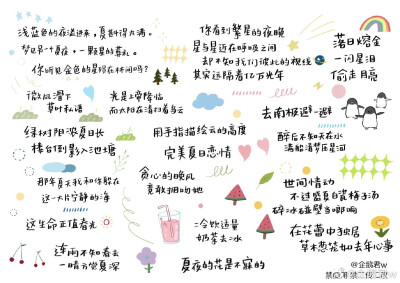 浅蓝色的夜溢进来，夏斟得太满。
梦见另十夏夜，一颗星的葬礼。
你听见金色的星祈在林间吗？
你看到繁星的夜晚
星与星近在呼吸之间
却不知我们彼此的视线
其实远隔着亿万光年
落日熔金
一闪星泪
偷走目晷
微风滑下
草叶私语
光是上帝降临
而太阳在清扫着乌云
去南极避一避
绿树阴浓夏日长
楼台倒影入池塘
用手指描绘云的高度
完美夏日恋情
醉后不知天在水
满船清梦压星河
那年夏天我和你躲在
这一大片宁静的海
贪心的晚风
竟敢拥吻她
世间情动
不过盛夏白瓷梅子汤
碎冰碰壁当啷响
这生命正值春光
冷饮适量
奶茶去冰
在花蕾中独居
草木葱茏如去年心事
连雨不知春去
一晴方觉夏深
夏夜的花是不寐的
@企鹅君w
禁商用 禁二传二改